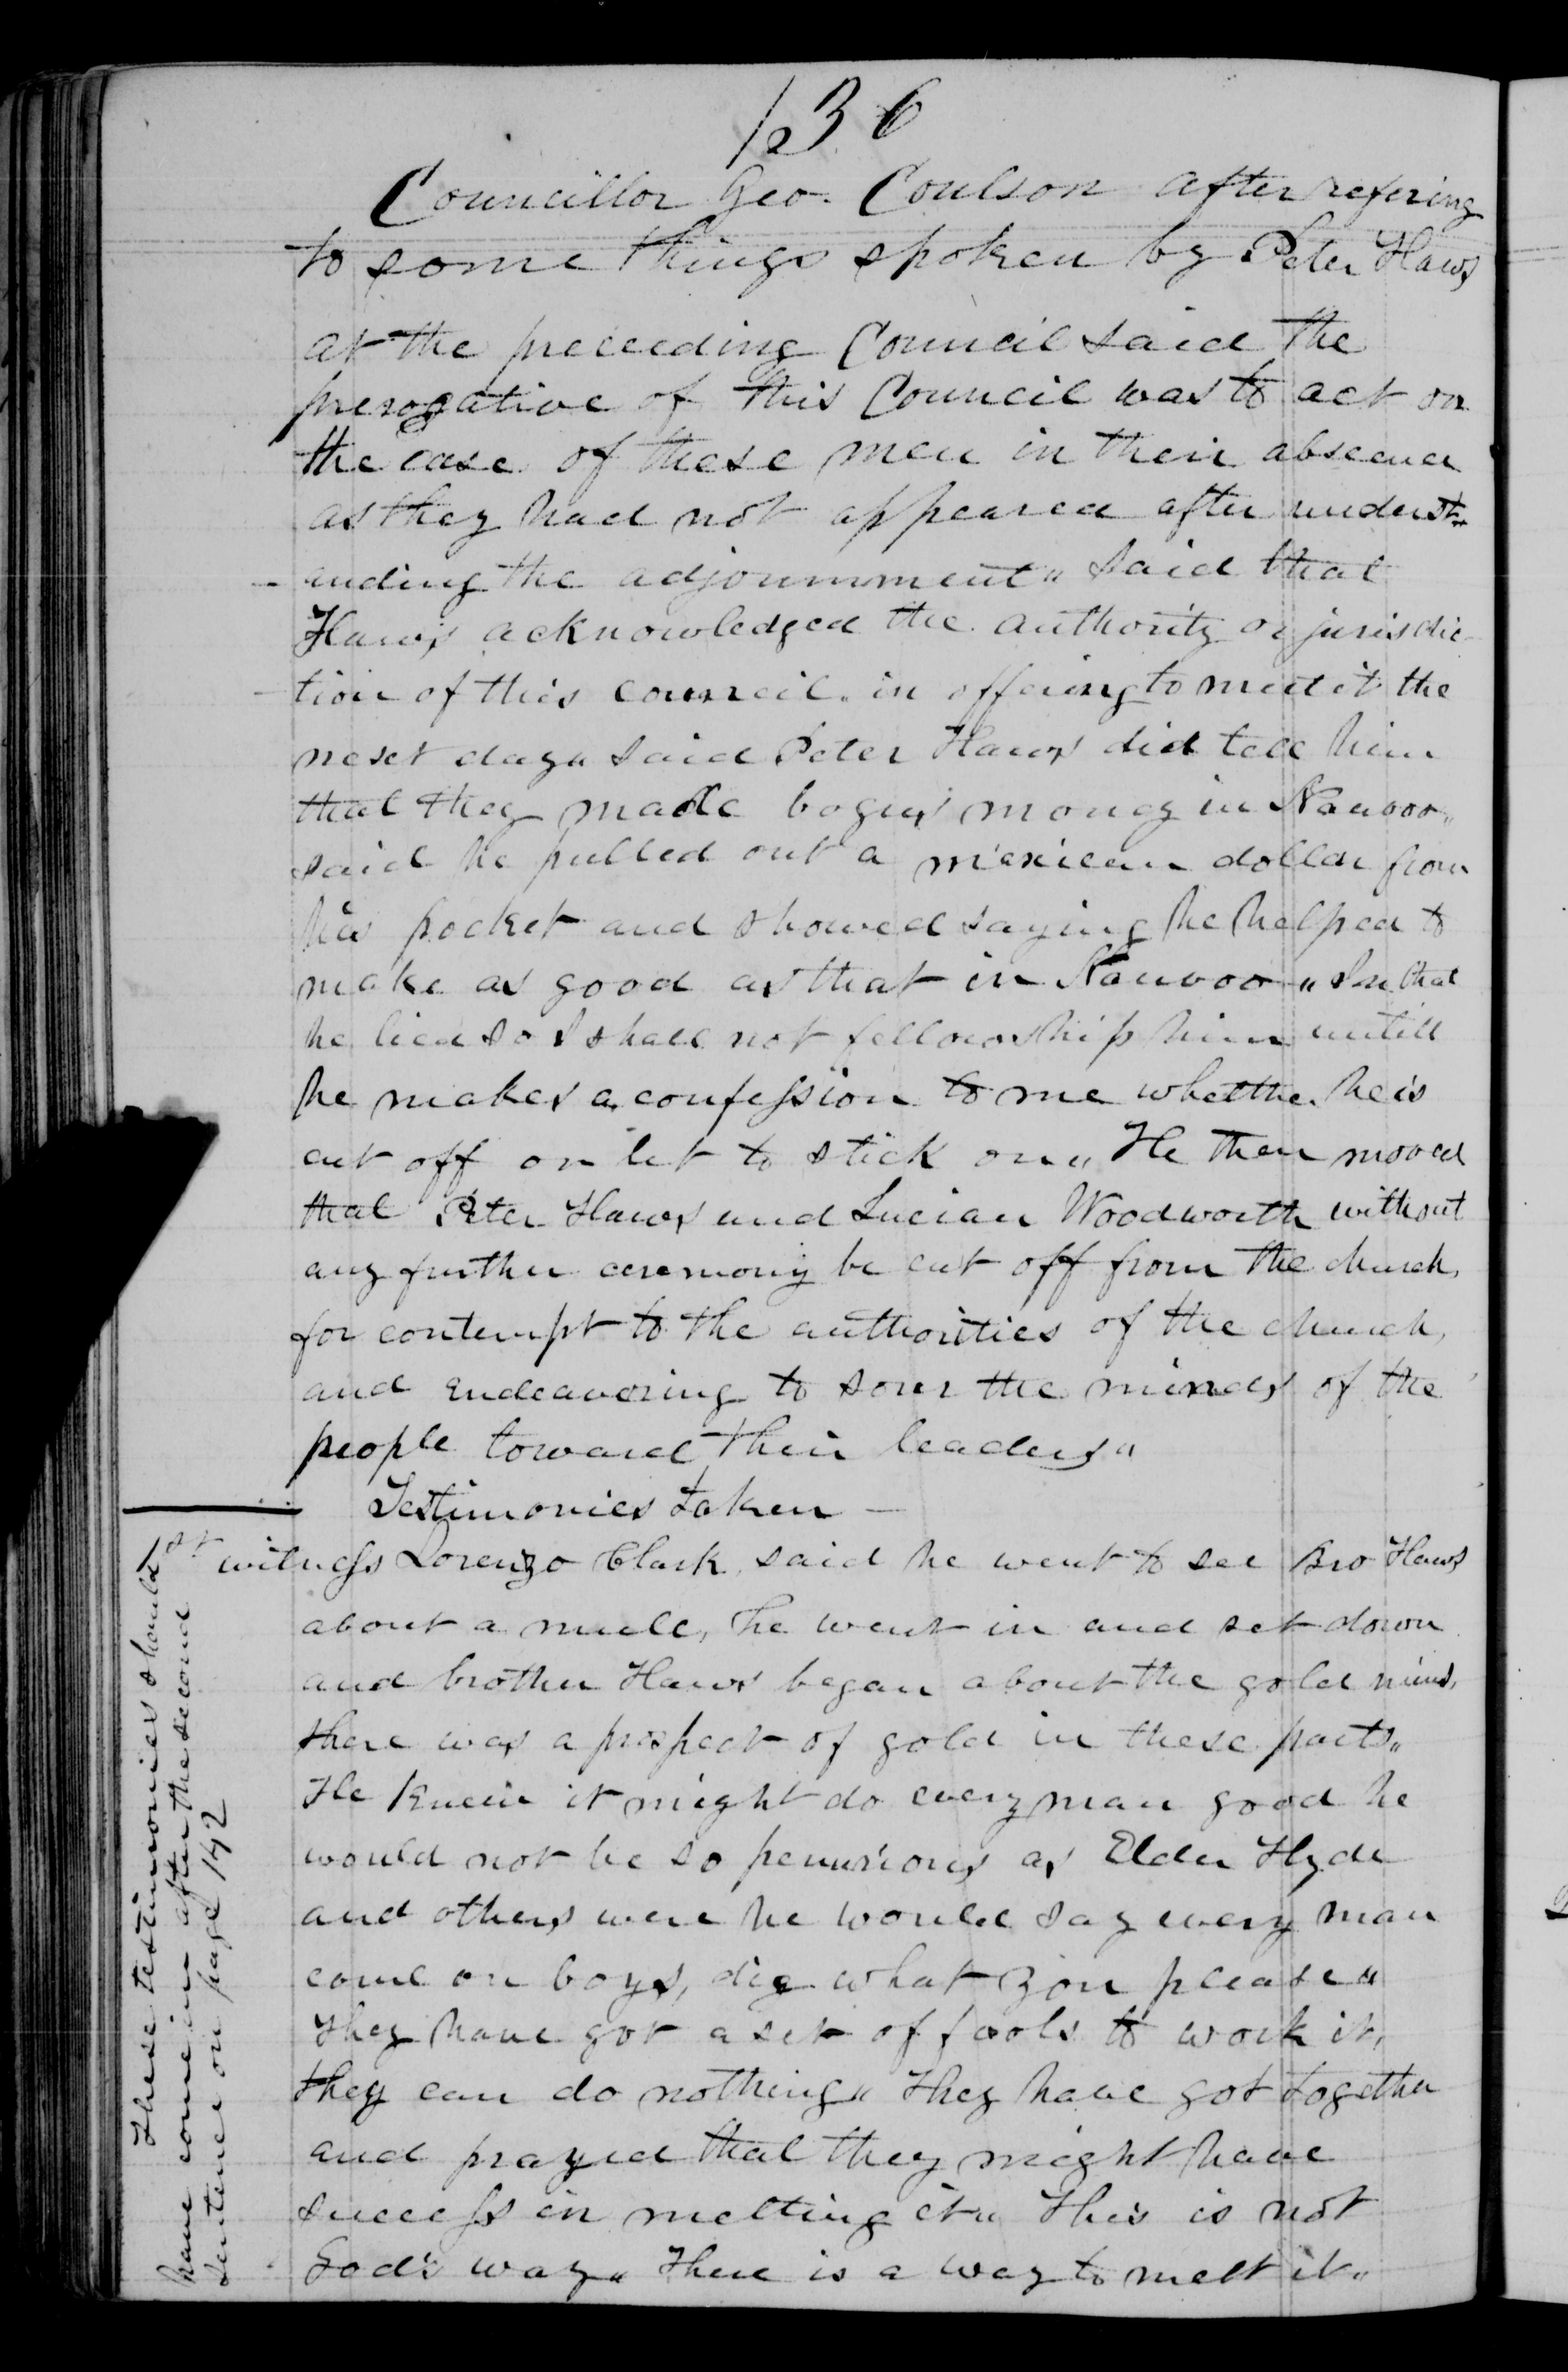 136
Councillor Geo. Coulson after refering
to some things spoken by Peter Haws
at the preceeding Council said the
prerogative of this Council was to act on
the case of these men in their absence
as they had not appeared after underst-
-anding the adjournment" said that
Haws acknowledged the authority or jurisdic-
-tion of this council. in offering to meet it the
next day" said Peter Haws did tell him
that they made bogus money in Nauvoo"
said he pulled out a mexican dollar from
his pocket and showed saying he helped to
make as good as that in Nauvoo" In that
he lied so I shall not fellowship him untill
he makes a confession to me whether he is
cut off or let to stick on" He then moved
that Peter Haws and Lucian Woodworth without
any further ceremony be cut off from the church,
for contempt to the authorities of the church,
and endeavoring to sour the minds of the
people toward their leaders"
Testimonies taken —
1st witness Lorenzo Clark, said he went to see Bro Haws
about a mule, he went in and set down
and brother Haws began about the gold mines,
there was a prospect of gold in these parts"
He knew it might do every man good he
would not be so penurious as Elder Hyde
and others were he would say every man
come on boys, dig what you please"
They have got a set of fools to work it,
they can do nothing" They have got together
and prayed that they might have
success in melting it" This is not
God's way" There is a way to melt it"
These testimonies should
have come in after the second
sentence on page 142